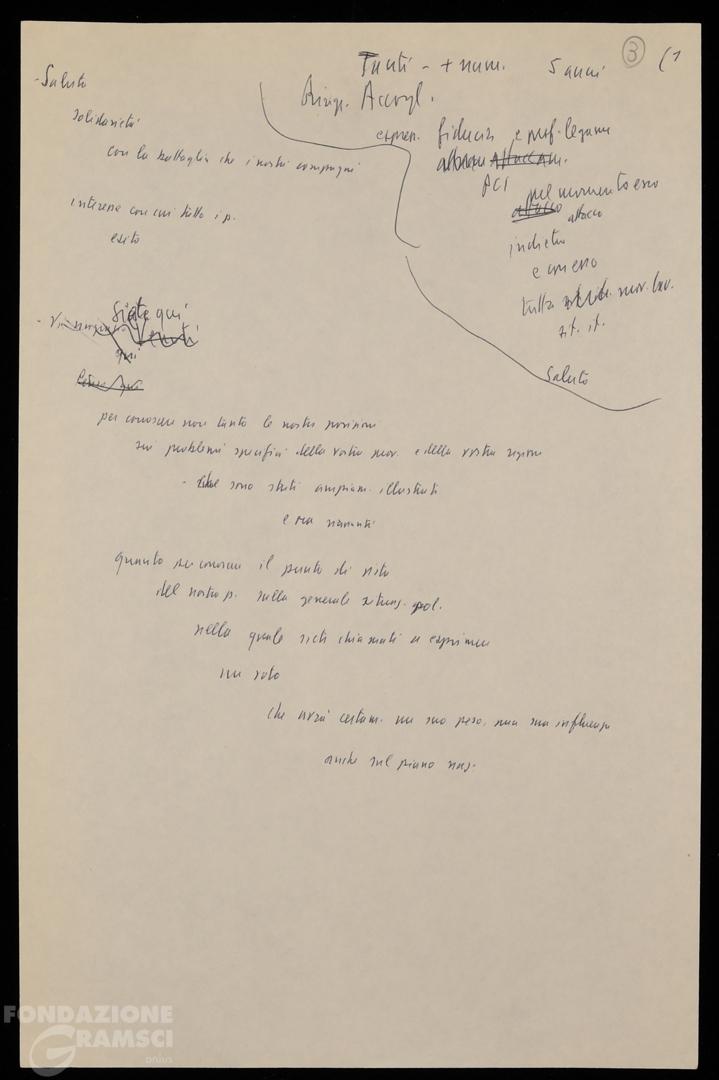 Tanti - + num. 5 anni 3 (1
Ringr. Accogl.
espress. fiducia e prof. legame
PCI
nel momento
attacco
indietro
e con esso
tutto mov. lav.
sit. it.
Saluto
- Saluto
solidarietà
con la battaglia che i nostri compagni
interesse con cui tutto i p.
esito
- Siete qui
per conoscere non tanto le nostre posizioni
sui problemi specifici della vostra prov. e della vostra regione
- che sono stati ampiam. illustrati
quanto per conoscere il punto di vista
del nostro p. sulla generale situaz. pol.
nella quale siete chiamati a esprimere
un voto
che avrà certam. un suo peso, una sua influenza
anche sul piano naz.
FONDAZIONE
GRAMSCI
onlus